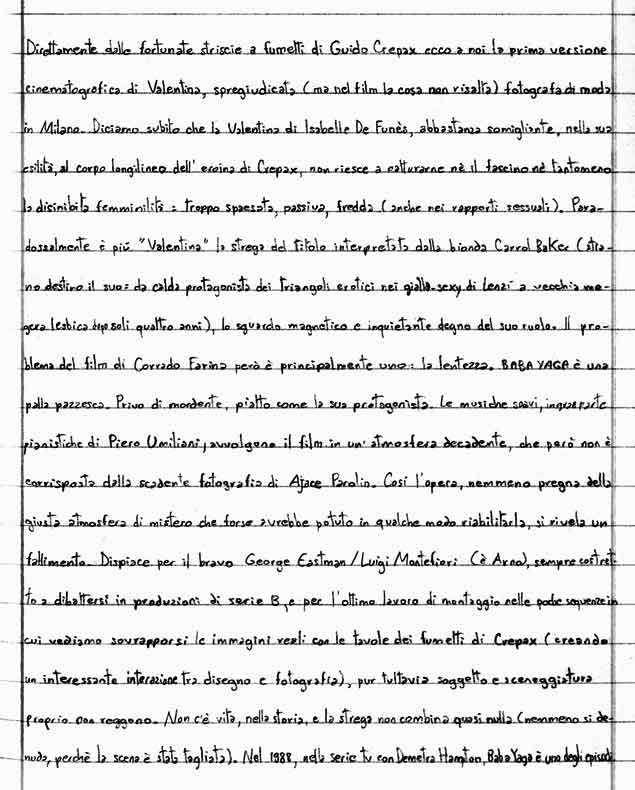 Direttamente dalle fortunate striscie a fumetti di Guido Crepax ecco a noi la prima versione
cinematografica di Valentina, spregiudicata (ma nel film la cosa non risalta) fotografa di moda
in Milano. Diciamo subito che la Valentina di Isabelle De Funès, abbastanza somigliante, nella sua
esilità, al corpo longilineo dell'eroina di Crepax, non riesce a catturarne nè il fascino nè tantomeno
la disinibita femminilità: troppo spaesata, passiva, fredda (anche nei rapporti sessuali). Para-
dossalmente è più "Valentina" la strega del titolo interpretata dalla bionda Carrol Baker (stra-
no destino il suo: da calda protagonista dei triangoli erotici nei giallo-sexy di Lenzi a vecchia me-
gera lesbica dopo soli quattro anni), lo sguardo magnetico e inquietante degno del suo ruolo. Il pro-
blema del film di Corrado Farina però è principalmente uno: la lentezza. BABA YAGA è una
palla pazzesca. Privo di mordente, piatto come la sua protagonista. Le musiche soavi, in gran parte
pianistiche di Piero Umiliani, avvolgono il film in un'atmosfera decadente, che però non è
corrisposta dalla scadente fotografia di Ajace Parolin. Così l'opera, nemmeno pregna della
giusta atmosfera di mistero che forse avrebbe potuto in qualche modo riabilitarla, si rivela un
fallimento. Dispiace per il bravo George Eastman/Luigi Montefiori (è Arno), sempre costret-
to a dibattersi in produzioni di serie B, e per l'ottimo lavoro di montaggio nelle poche sequenze in
cui vediamo sovrapporsi le immagini reali con le tavole dei fumetti di Crepax (creando
un interessante interazione tra disegno e fotografia), pur tuttavia soggetto e sceneggiatura
proprio non reggono. Non c'è vita, nella storia, e la strega non combina quasi nulla (nemmeno si de-
nuda, perchè la scena è stata tagliata). Nel 1988, nella serie tv con Demetra Hampton, Baba Yaga è uno degli episodi.